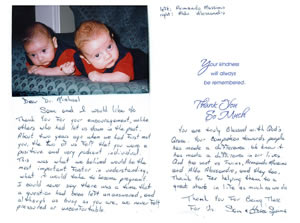 left: Armando Massimo
right: Aldo Alessandro
Your kindness
will always
be remembered.
Thank You
So Much
Dear Dr. Michael
Sam and I would like to
Thank You For your encouragement, unlike
others who had let us down in the past.
About two years ago when we had first met
you, the two of us felt that you were a
positive and very patient individual.
This was what we believed would be the
most important factor in understanding
what it would take to become pregnant.
I could never say there was a time that
a question had been left un-answered, and
although as busy as you are, we never felt
pressured or uncomfortable.
You are truly Blessed with God's
Grace. Your compassion towards people
has made a difference. We know it
has made a difference in our lives
God has sent us Twins, Armando Massimo
and Aldo Alessandro, and they too,
Thank You for helping them be a
great ... in life as much as we do
Thank You For Being There
For Us.